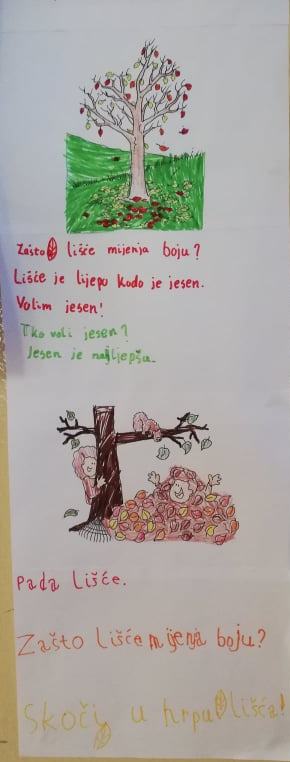 Zašto lišće mijenja boju?
Lišće je lijepo kodo je jesen.
Volim jesen!
Tko voli jesen?
Jesen je najljepšu.
Pada Lišće.
Zašto lišće mijenja boju?
Skoči u hrpu lišća!